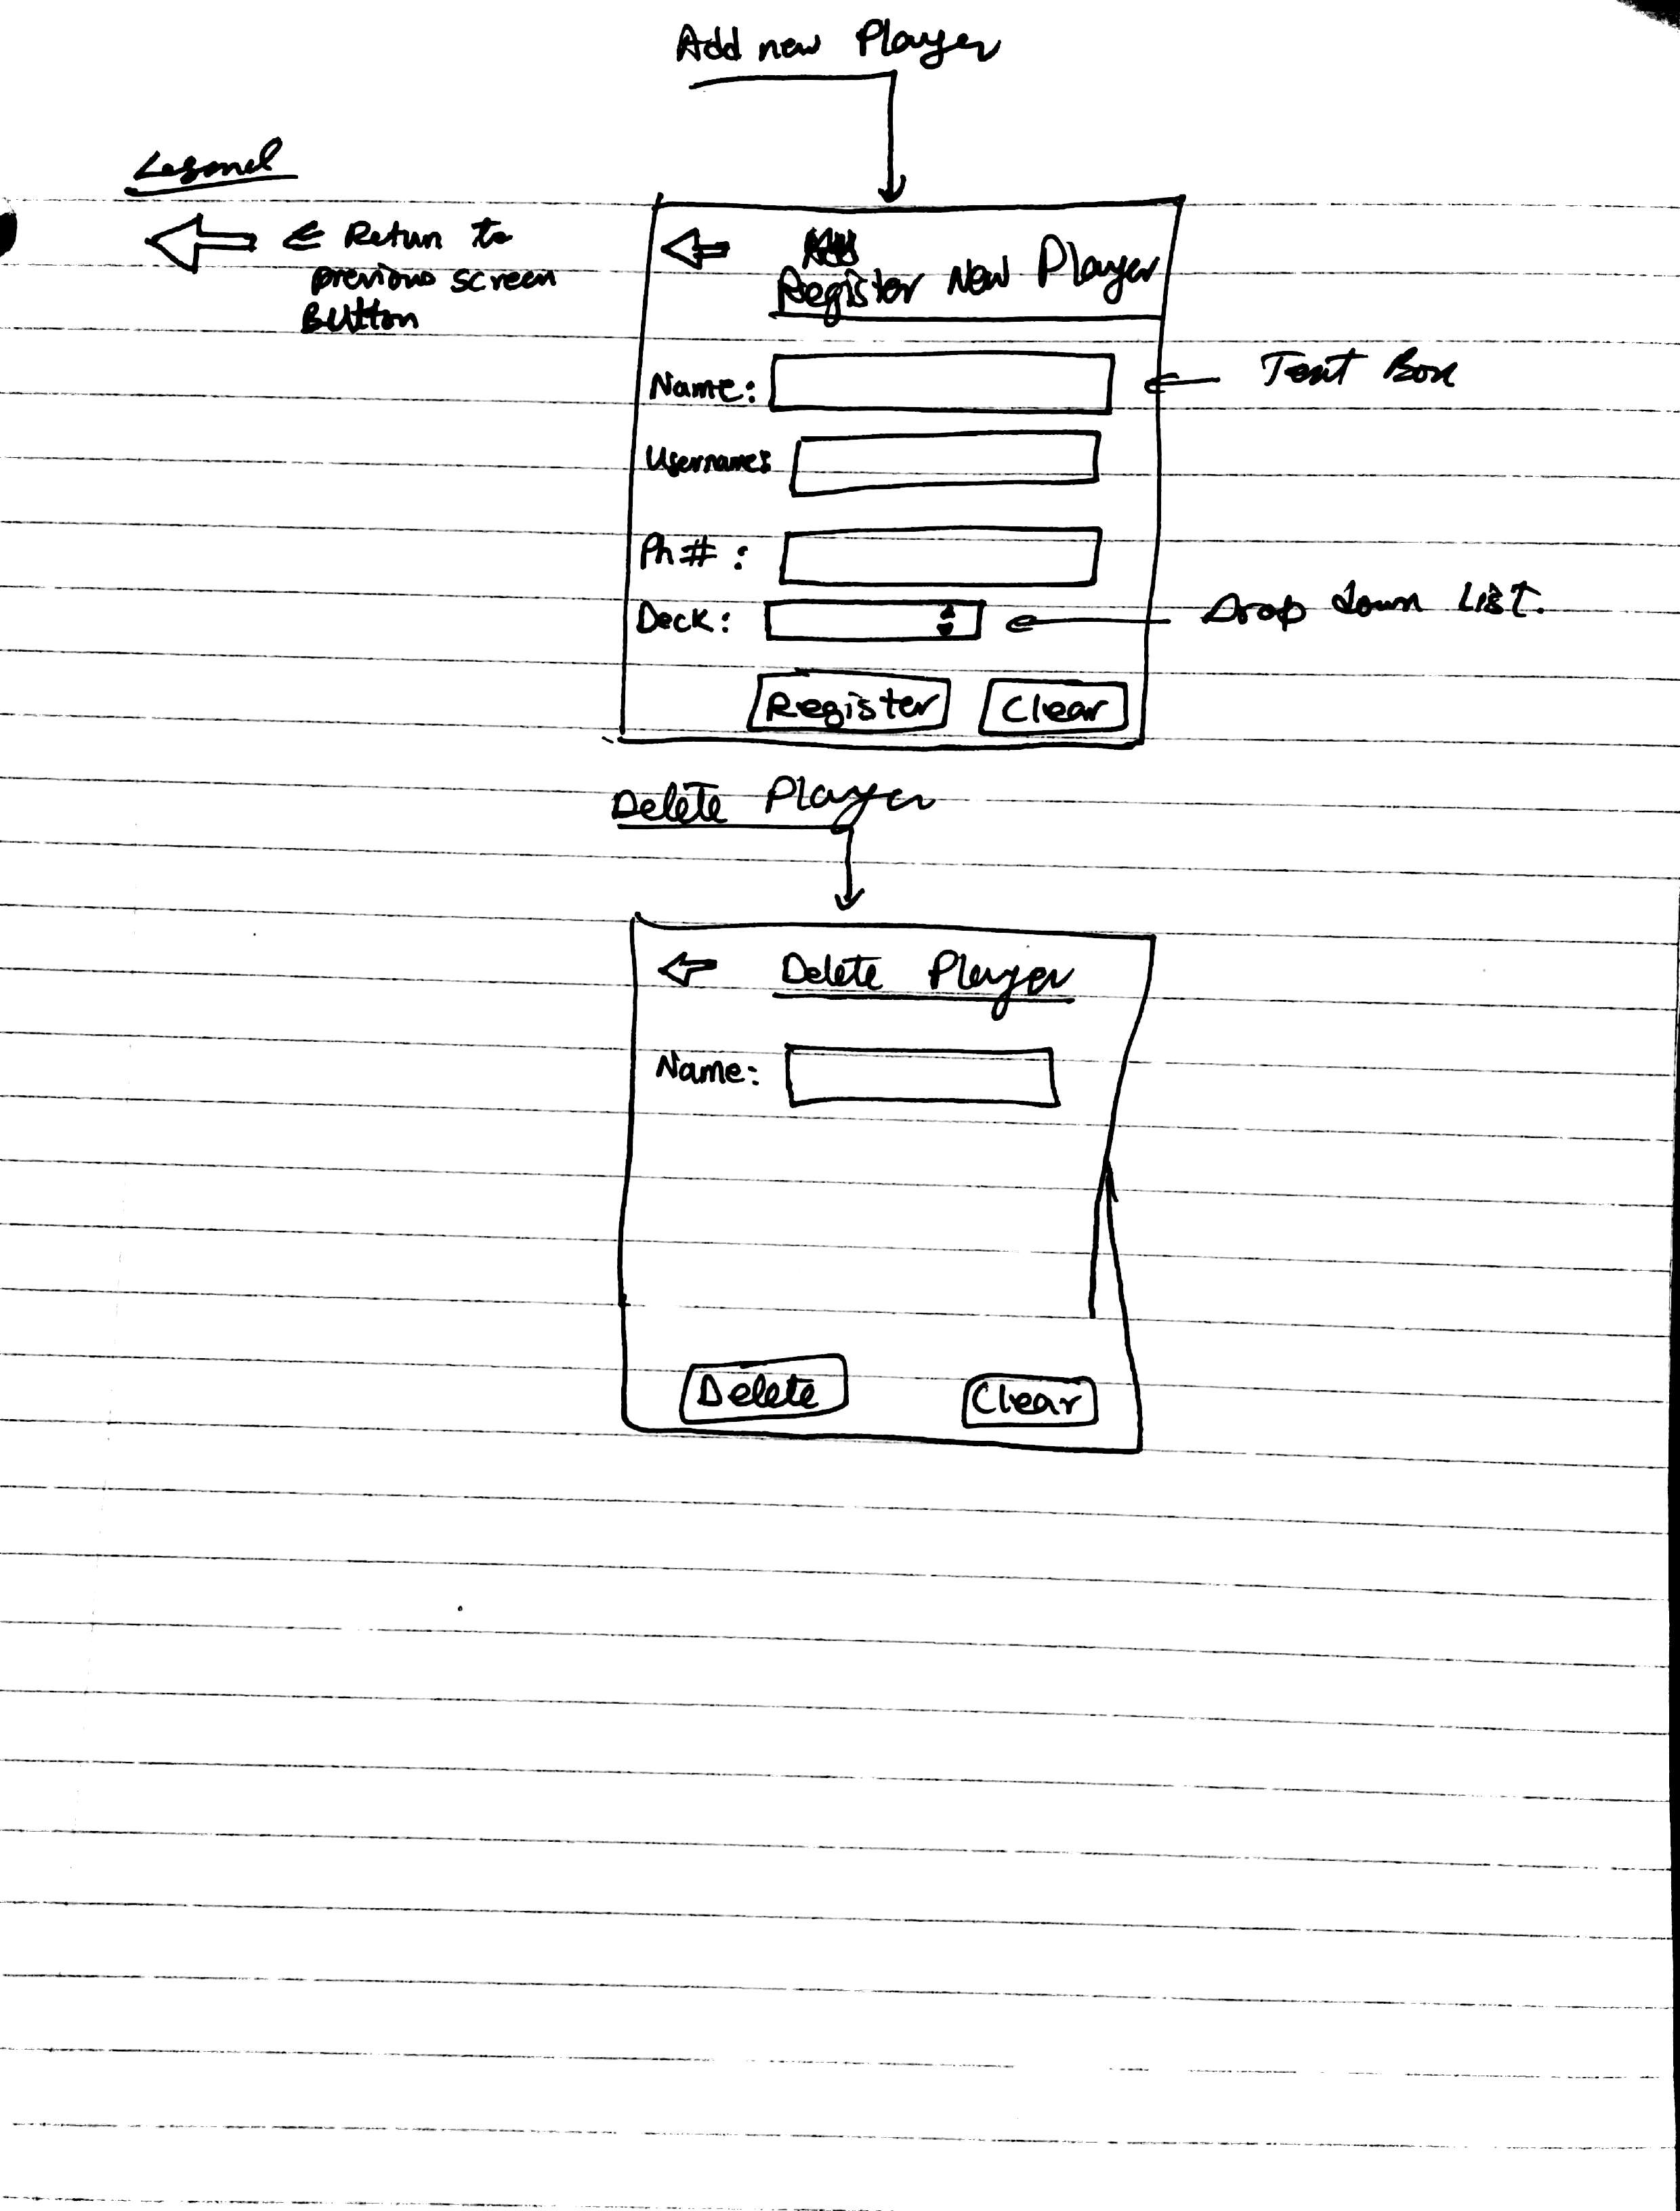 Add new Player
Legend
Return to
previous screen
Button
Register New Player
Name:
Text Box
Username:
Ph# :
Deck:
Drop down List.
Register
Clear
Delete Player
Delete Player
Name:
Delete
Clear